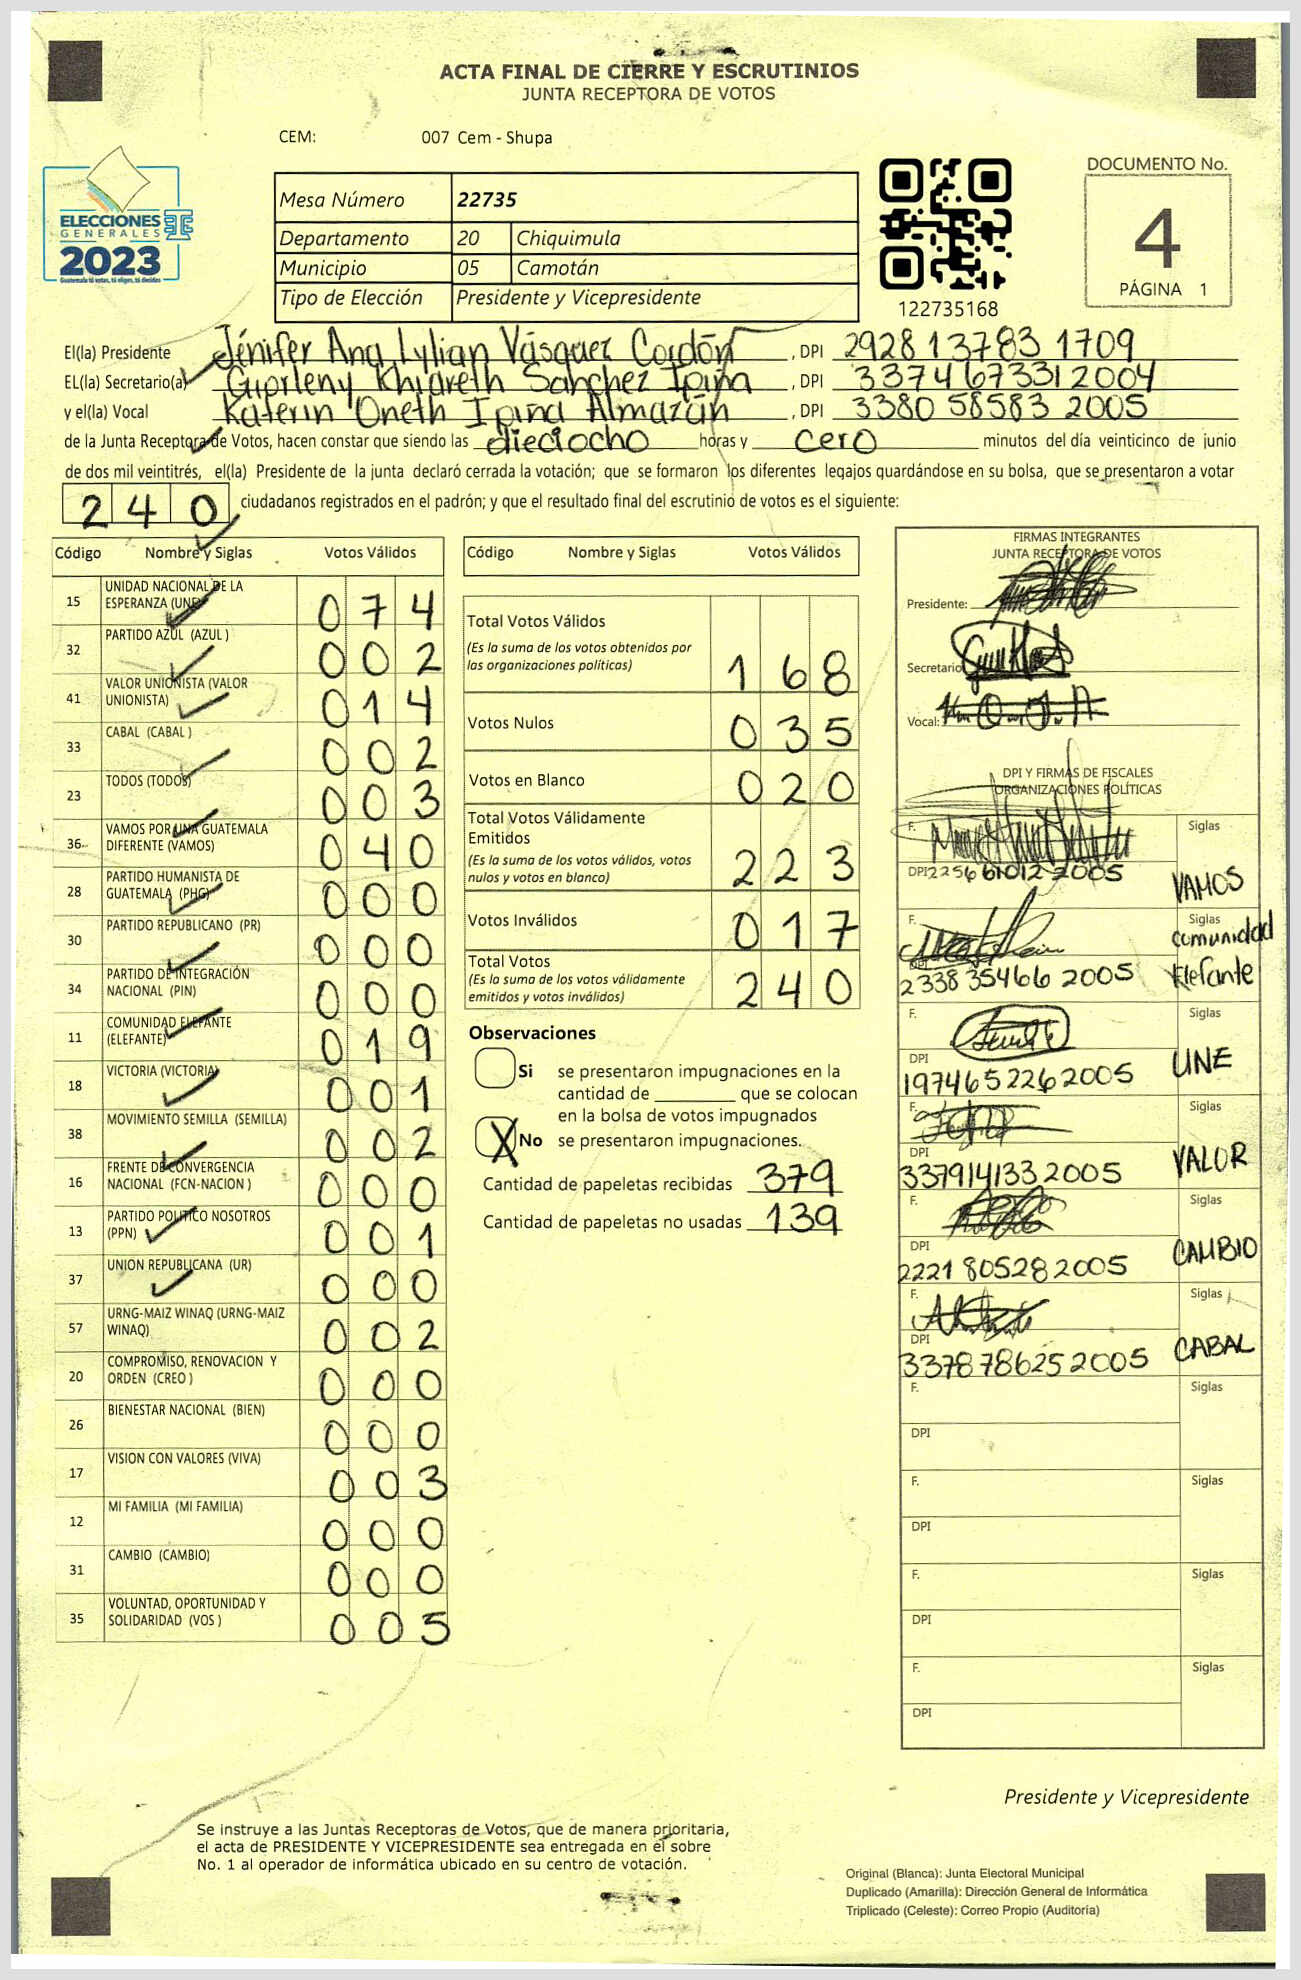 ACTA FINAL DE CIERRE Y ESCRUTINIOS
JUNTA RECEPTORA DE VOTOS
CEM: 007 Cem - Shupa
ELECCIONES
GENERALES
2023
Guatemala tú votas, tú eliges, tú decides
Mesa Número 22735
Departamento 20 Chiquimula
Municipio 05 Camotán
Tipo de Elección Presidente y Vicepresidente
122735168
DOCUMENTO No.
4
PÁGINA 1
El(la) Presidente Jénifer Ana Lylian Vásquez Cordón, DPI 2928 13783 1709
EL(la) Secretario(a) Giorleny Khiareth Sánchez Ipiña, DPI 3374 67331 2004
y el(la) Vocal Katerin Oneth Ipiña Almazán, DPI 3380 58583 2005
de la Junta Receptora de Votos, hacen constar que siendo las dieciocho horas y cero minutos del día veinticinco de junio
de dos mil veintitrés, el(la) Presidente de la junta declaró cerrada la votación; que se formaron los diferentes legajos quardándose en su bolsa, que se presentaron a votar
240 ciudadanos registrados en el padrón; y que el resultado final del escrutinio de votos es el siguiente:
Código Nombre y Siglas Votos Válidos
15 UNIDAD NACIONAL DE LA ESPERANZA (UNE) 074
32 PARTIDO AZUL (AZUL ) 002
41 VALOR UNIONISTA (VALOR UNIONISTA) 014
33 CABAL (CABAL ) 002
23 TODOS (TODOS) 003
36 VAMOS POR UNA GUATEMALA DIFERENTE (VAMOS) 040
28 PARTIDO HUMANISTA DE GUATEMALA (PHG) 000
30 PARTIDO REPUBLICANO (PR) 000
34 PARTIDO DE INTEGRACIÓN NACIONAL (PIN) 000
11 COMUNIDAD ELEFANTE (ELEFANTE) 019
18 VICTORIA (VICTORIA) 001
38 MOVIMIENTO SEMILLA (SEMILLA) 002
16 FRENTE DE CONVERGENCIA NACIONAL (FCN-NACION ) 000
13 PARTIDO POLITICO NOSOTROS (PPN) 001
37 UNION REPUBLICANA (UR) 000
57 URNG-MAIZ WINAQ (URNG-MAIZ WINAQ) 002
20 COMPROMISO, RENOVACION Y ORDEN (CREO ) 000
26 BIENESTAR NACIONAL (BIEN) 000
17 VISION CON VALORES (VIVA) 003
12 MI FAMILIA (MI FAMILIA) 000
31 CAMBIO (CAMBIO) 000
35 VOLUNTAD, OPORTUNIDAD Y SOLIDARIDAD (VOS ) 005
Código Nombre y Siglas Votos Válidos
Total Votos Válidos 168
(Es la suma de los votos obtenidos por
las organizaciones políticas)
Votos Nulos 035
Votos en Blanco 020
Total Votos Válidamente
Emitidos 223
(Es la suma de los votos válidos, votos
nulos y votos en blanco)
Votos Inválidos 017
Total Votos 240
(Es la suma de los votos válidamente
emitidos y votos inválidos)
Observaciones
Si se presentaron impugnaciones en la
cantidad de ________ que se colocan
en la bolsa de votos impugnados
X No se presentaron impugnaciones.
Cantidad de papeletas recibidas 379
Cantidad de papeletas no usadas 139
FIRMAS INTEGRANTES
JUNTA RECEPTORA DE VOTOS
Presidente:
Secretario
Vocal:
DPI Y FIRMAS DE FISCALES
ORGANIZACIONES POLÍTICAS
F. Siglas
DPI 2256 61012 2005 VAMOS
F. Siglas
DPI 2338 35466 2005 Comunidad Elefante
F. Siglas
DPI 1974652262005 UNE
F. Siglas
DPI 3379141332005 VALOR
F. Siglas
DPI 2221 80528 2005 CAMBIO
F. Siglas
DPI 3378786252005 CABAL
F. Siglas
DPI
F. Siglas
DPI
F. Siglas
DPI
F. Siglas
DPI
Presidente y Vicepresidente
Se instruye a las Juntas Receptoras de Votos, que de manera prioritaria,
el acta de PRESIDENTE Y VICEPRESIDENTE sea entregada en el sobre
No. 1 al operador de informática ubicado en su centro de votación.
Original (Blanca): Junta Electoral Municipal
Duplicado (Amarilla): Dirección General de Informática
Triplicado (Celeste): Correo Propio (Auditoría)